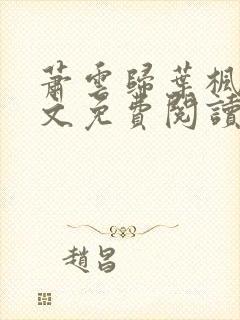 蕭雲歸葉楓
文免費閱讀
趙昌